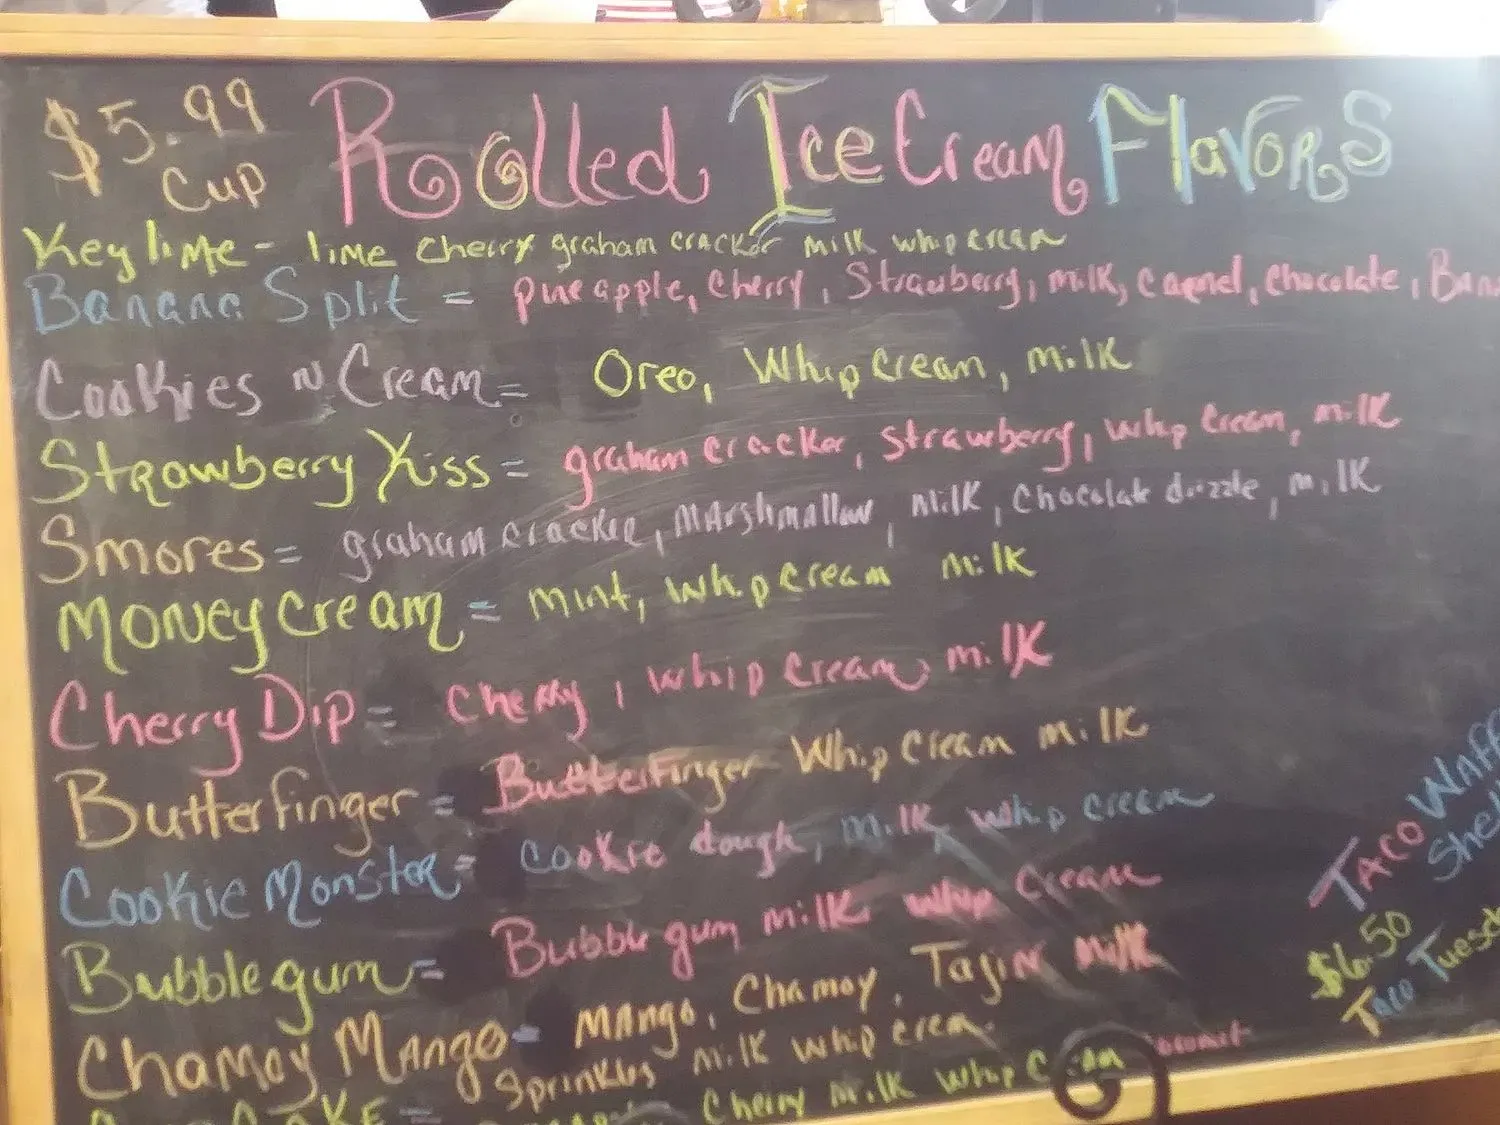 $5.99 Cup
Rolled Ice Cream Flavors
Key lime - lime cherry graham cracker milk whip cream
Banana Split = pineapple, Cherry, Strawberry, milk, Carmel, Chocolate,
Cookies n Cream = Oreo, Whip Cream, milk
Strawberry Kiss = graham cracker, strawberry, whip cream, milk
Smores = graham cracker, Marshmallow, milk, chocolate drizzle, milk
Money cream = mint, whip cream milk
Cherry Dip = Cherry, whip cream, milk
Butterfinger = Butterfinger Whip Cream milk
Cookie Monster = cookie dough, milk, whip cream
Bubble gum = Bubble gum milk whip cream
Chamoy Mango = Mango, Chamoy, Tajin milk
Sprinkles milk whip
Cherry milk whip
Taco
$6.50
Taco